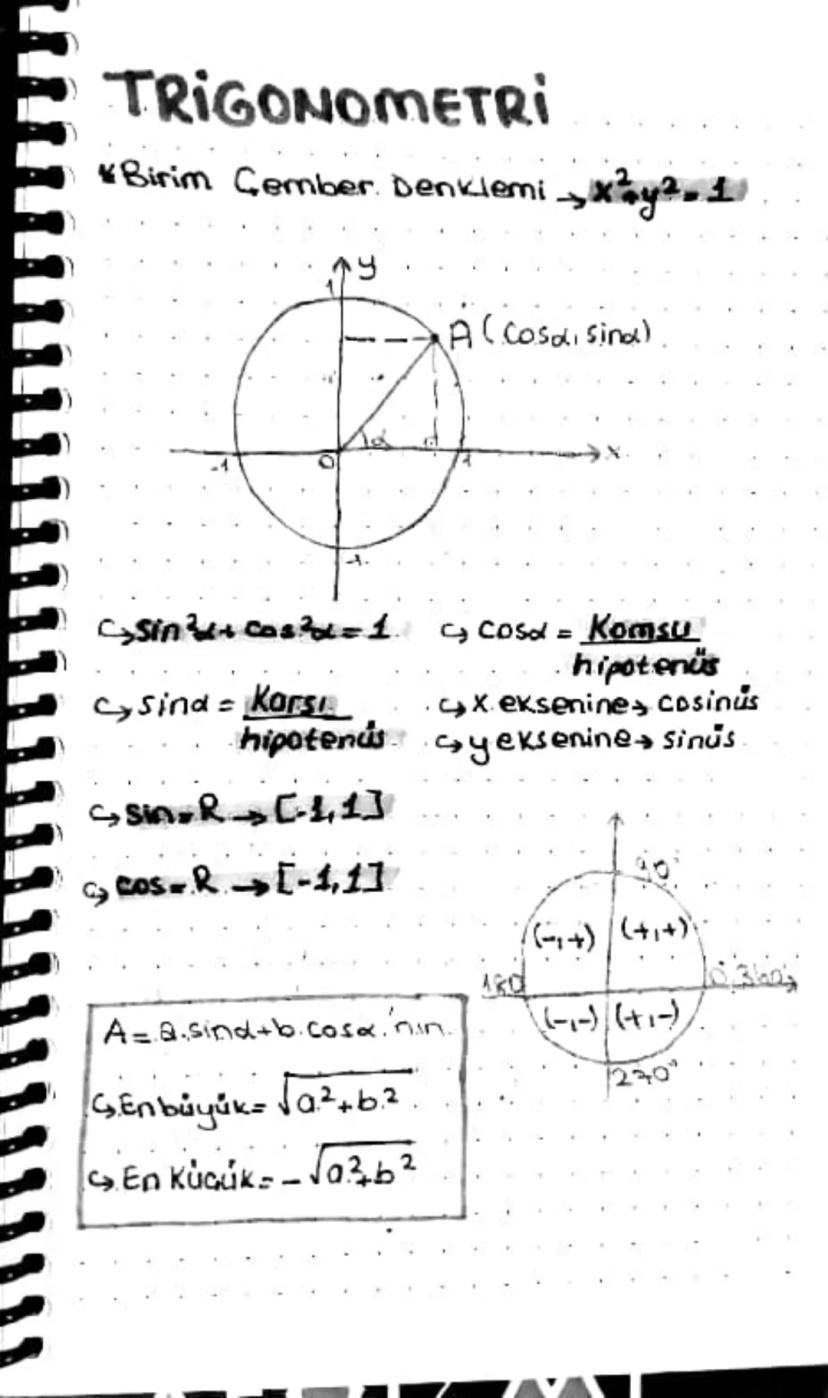 TRİGONOMETRİ
*Birim Çember Denklemi → x²+y²=1
y
1
A (cosα, sinα)
α
-1 0 1 x
-1
↪ sin²α + cos²α = 1
↪ cosα = Komsu
hipotenüs
↪ sinα = Karsı
hipotenüs
↪ x eksenine → cosinüs
↪ y eksenine → sinüs
↪ sin = R → [-1,1]
↪ cos = R → [-1,1]
90°
(-,+) (+,+)
180 0,360
(-,-) (+,-)
270°
A = a.sinα+b.cosα 'nın
↪ En büyük = √a²+b²
↪ En Küçük = -√a²+b²